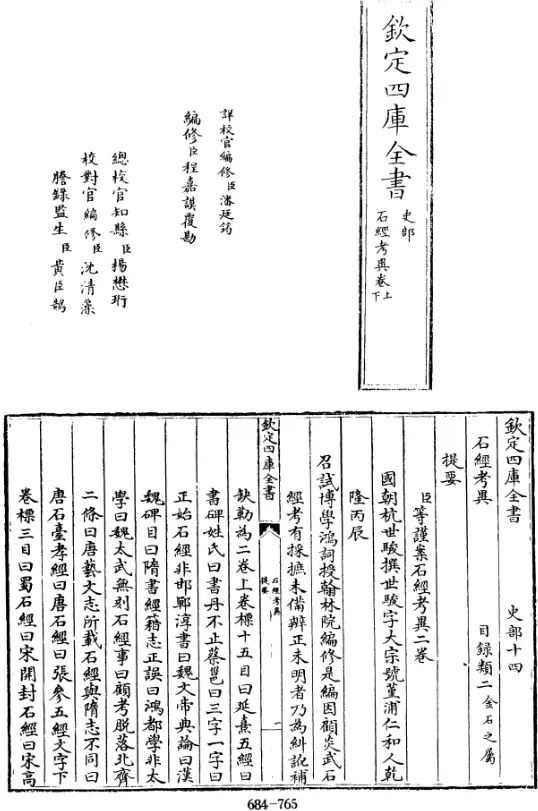 欽定四庫全書
史部
石經考異卷上
下
詳校官編修臣潘廷筠
編修臣程嘉謨覆勘
總校官知縣臣楊懋珩
校對官編修臣沈清藻
謄錄監生臣黃臣鵠
欽定四庫全書
史部十四
石經考異
目錄類二金石之屬
提要
臣等謹案石經考異二卷
國朝杭世駿撰世駿字大宗號堇浦仁和人乾
隆丙辰
召試博學鴻詞授翰林院編修是編因顧炎武石
經考有採摭未備辨正未明者乃為糾訛補
欽定四庫全書
石經考異
提要
一
缺勒為二卷上卷標十五目曰延熹五經曰
書碑姓氏曰書丹不止蔡邕曰三字一字曰
正始石經非邯鄲淳書曰魏文帝典論曰漢
魏碑目曰隋書經籍志正誤曰鴻都學非太
學曰魏太武無刻石經事曰顧考脫落北齊
二條曰唐藝文志所載石經與隋志不同曰
唐石臺孝經曰唐石經曰張參五經文字下
卷標三目曰蜀石經曰宋開封石經曰宋高
684-765